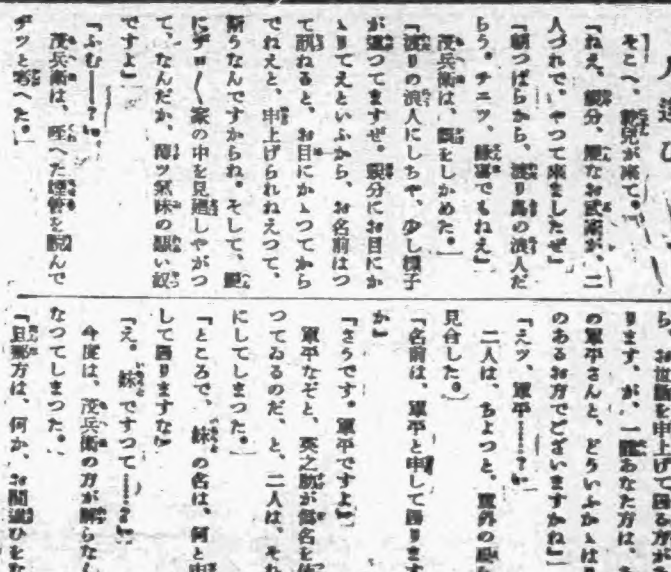 そこへ、乾兒が來て。
「ねえ、親分、變なお武家が、二
人づれで、やつて來ましたぜ」
「朝つぱらから、渡り鳥の浪人だ
らう。チエツ、緣喜でもねえ」
茂兵衞は、顏をしかめた。
「渡りの浪人にしちや、少し樣子
が違つてますぜ。親分にお目にか
ゝりてえといふから、お名前はつ
て訊ねると、お目にかゝつてから
でねえと、申上げられねえつて、
斯うなんですからね。そして、變
にヂロ〳〵家の中を見廻しやがつ
て、なんだか、薄ツ氣味の惡い奴
ですよ」
「ふむ――？」
茂兵衞は、咥へた煙管を睨んで
ヂツと考へた。
ら、お世話を申上げて居る方があ
ります、が、一體あなた方は、
の軍平さんと、どういふかゝは
のあるお方でございますかね」
「えツ、軍平……？」
二人は、ちよつと、意外の
見合した。
「名前は、軍平と申して居ります
か」
「さうです。軍平ですよ」
軍平なぞと、英之助が假名を
つてゐるのだ、と、二人は、それ
にしてしまつた。
「ところで、妹の名は、何と申
して居りますな」
「え。妹ですつて……？」
今度は、茂兵衞の方が解らなく
なつてしまつた。
「旦那方は、何か、お間違ひをな